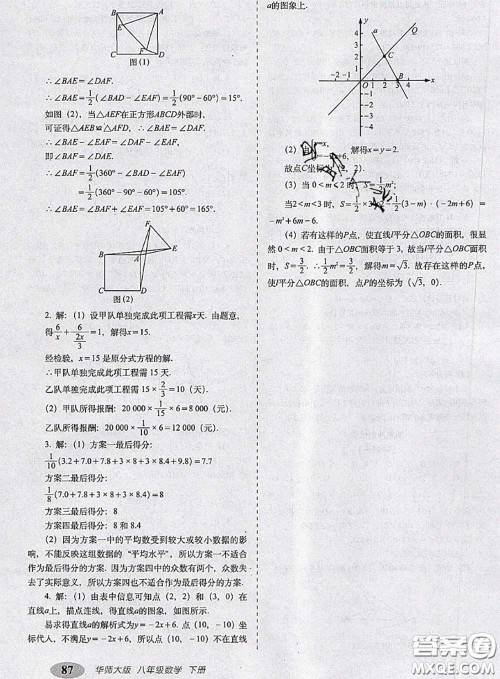 B
A
E
F
C
D
图(1)
∴∠BAE=∠DAF.
∴∠BAE=\frac{1}{2}(∠BAD-∠EAF)=\frac{1}{2}(90°-60°)=15°.
如图(2),当△AEF在正方形ABCD外部时,
可证得△AEB≌△AFD,∴∠BAE=∠DAF.
∴∠BAE-∠EAF=∠DAF-∠EAF,
即∠BAF=∠DAE.
∴∠BAF=\frac{1}{2}(360°-∠BAD-∠EAF)
=\frac{1}{2}(360°-90°-60°)=105°.
∴∠BAE=∠BAF+∠EAF=105°+60°=165°.
F
E
B
A
C
D
图(2)
2. 解:(1)设甲队单独完成此项工程需x天. 由题意,
得\frac{6}{x}+\frac{6}{\frac{2x}{3}}=1,解得x=15.
经检验,x=15是原分式方程的解.
∴甲队单独完成此项工程需15天.
乙队单独完成此项工程需15×\frac{2}{3}=10(天)
(2)甲队所得报酬:20 000×\frac{1}{15}×6=8 000(元).
乙队所得报酬:20 000×\frac{1}{10}×6=12 000(元).
3. 解:(1)方案一最后得分:
\frac{1}{10}(3.2+7.0+7.8+3×8+3×8.4+9.8)=7.7
方案二最后得分:
\frac{1}{8}(7.0+7.8+3×8+3×8.4)=8
方案三最后得分:8
方案四最后得分:8和8.4
(2)因为方案一中的平均数受到较大或较小数据的影
响,不能反映这组数据的“平均水平”,所以方案一不适合
作为最后得分的方案. 因为方案四中的众数有两个,众数失
去了实际意义,所以方案四也不适合作为最后得分的方案.
4. 解:(1)由表中信息可知点(2,2)和(3,0)在
直线a上,描点连线,得直线a的图象,如图所示.
易求得直线a的解析式为y=-2x+6. 点(10,-10)坐
标代人,不满足y=-2x+6,所以点(10,-10)不在直线
a的图象上.
y
4
3
2
1
-2 -1 0 1 2 3 4 x
-1
-2
-3
-4
a
Q
C
B
(2)由 =x,
+6, 解得x=y=2.
故点C坐标 2,2).
(3)当0<m≤2时,S=\frac{1}{2}m²;
当2<m<3时,S=\frac{1}{2}×3×2-\frac{1}{2}(3-m)·(-2m+6)=
-m²+6m-6.
(4)若有这样的P点,使直线l平分△OBC的面积,很显
然0<m<2. 由于△OBC面积等于3,故当l平分△OBC面积
时,S=\frac{3}{2}. ∴\frac{1}{2}m²=\frac{3}{2},解得m=√3. 故存在这样的P点,
使l平分△OBC的面积,点P的坐标为(√3,0).
87 华师大版 八年级数学 下册
答案圈
MXQE.COM